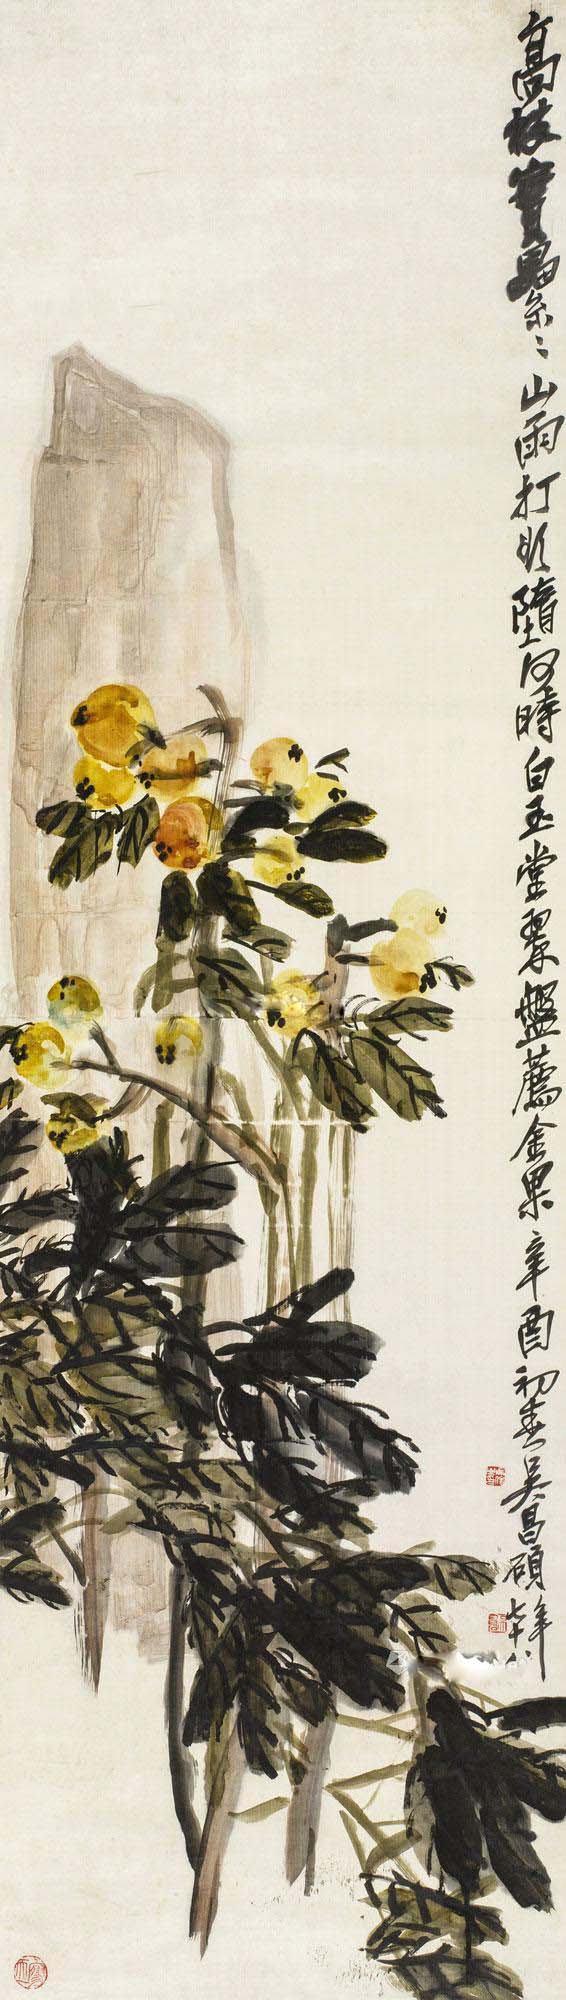 高枝實纍〻山雨打欲墮何時白玉堂翠盤薦金果辛酉初春吳昌碩年
七十八